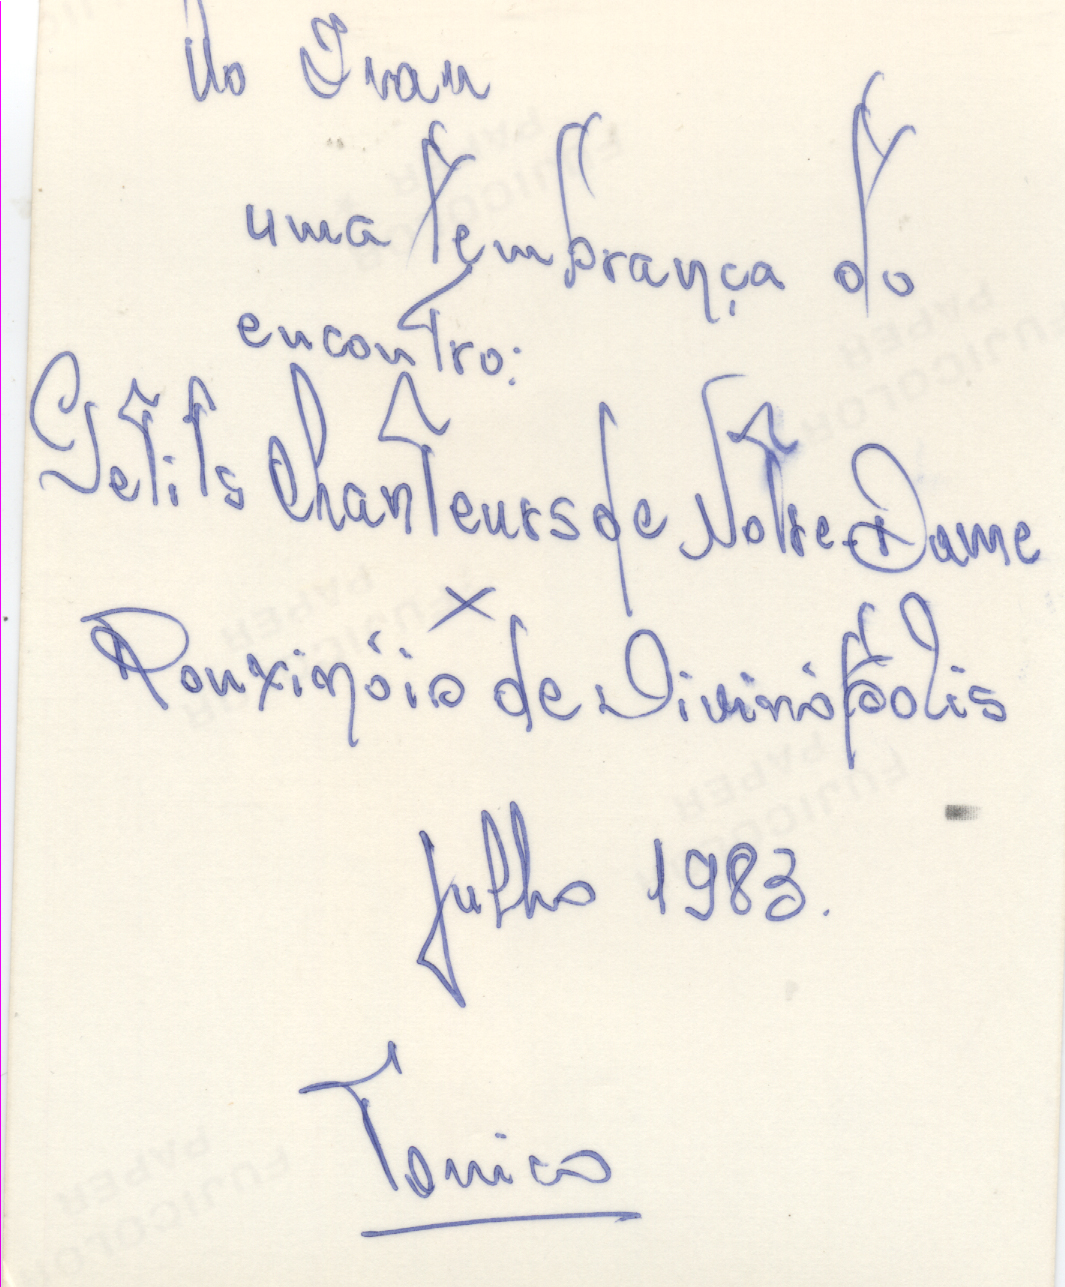 Ao Ivan
uma lembrança do
encontro:
Petits Chanteurs de Notre-Dame
x
Rouxinóis de Divinópolis
julho 1983.
Tonico
FUJICOLOR
PAPER
FUJICOLOR
PAPER
FUJICOLOR
PAPER
FUJICOLOR
PAPER
FUJICOLOR
PAPER